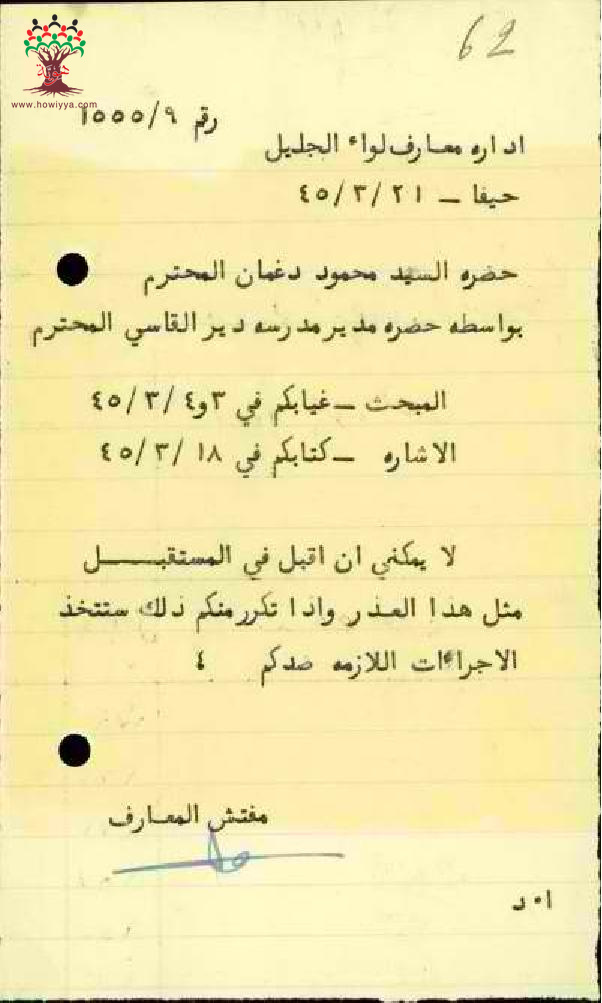 62
www.howiyya.com
رقم ١٥٥٥/٩
اداره معارف لواء الجليل
حيفا ــ ٤٥/٣/٢١
حضره السيد محمود دغمان المحترم
بواسطه حضره مدير مدرسه دير القاسي المحترم
المبحث ــ غيابكم في ٣و٤/٣/٤٥
الاشاره ــ كتابكم في ٤٥/٣/١٨
لا يمكنني ان اقبل في المستقبـــــل
مثل هذا العذر واذا تكرر منكم ذلك ستتخذ
الاجراءات اللازمه ضدكم ٤
مفتش المعارف
ا٠د